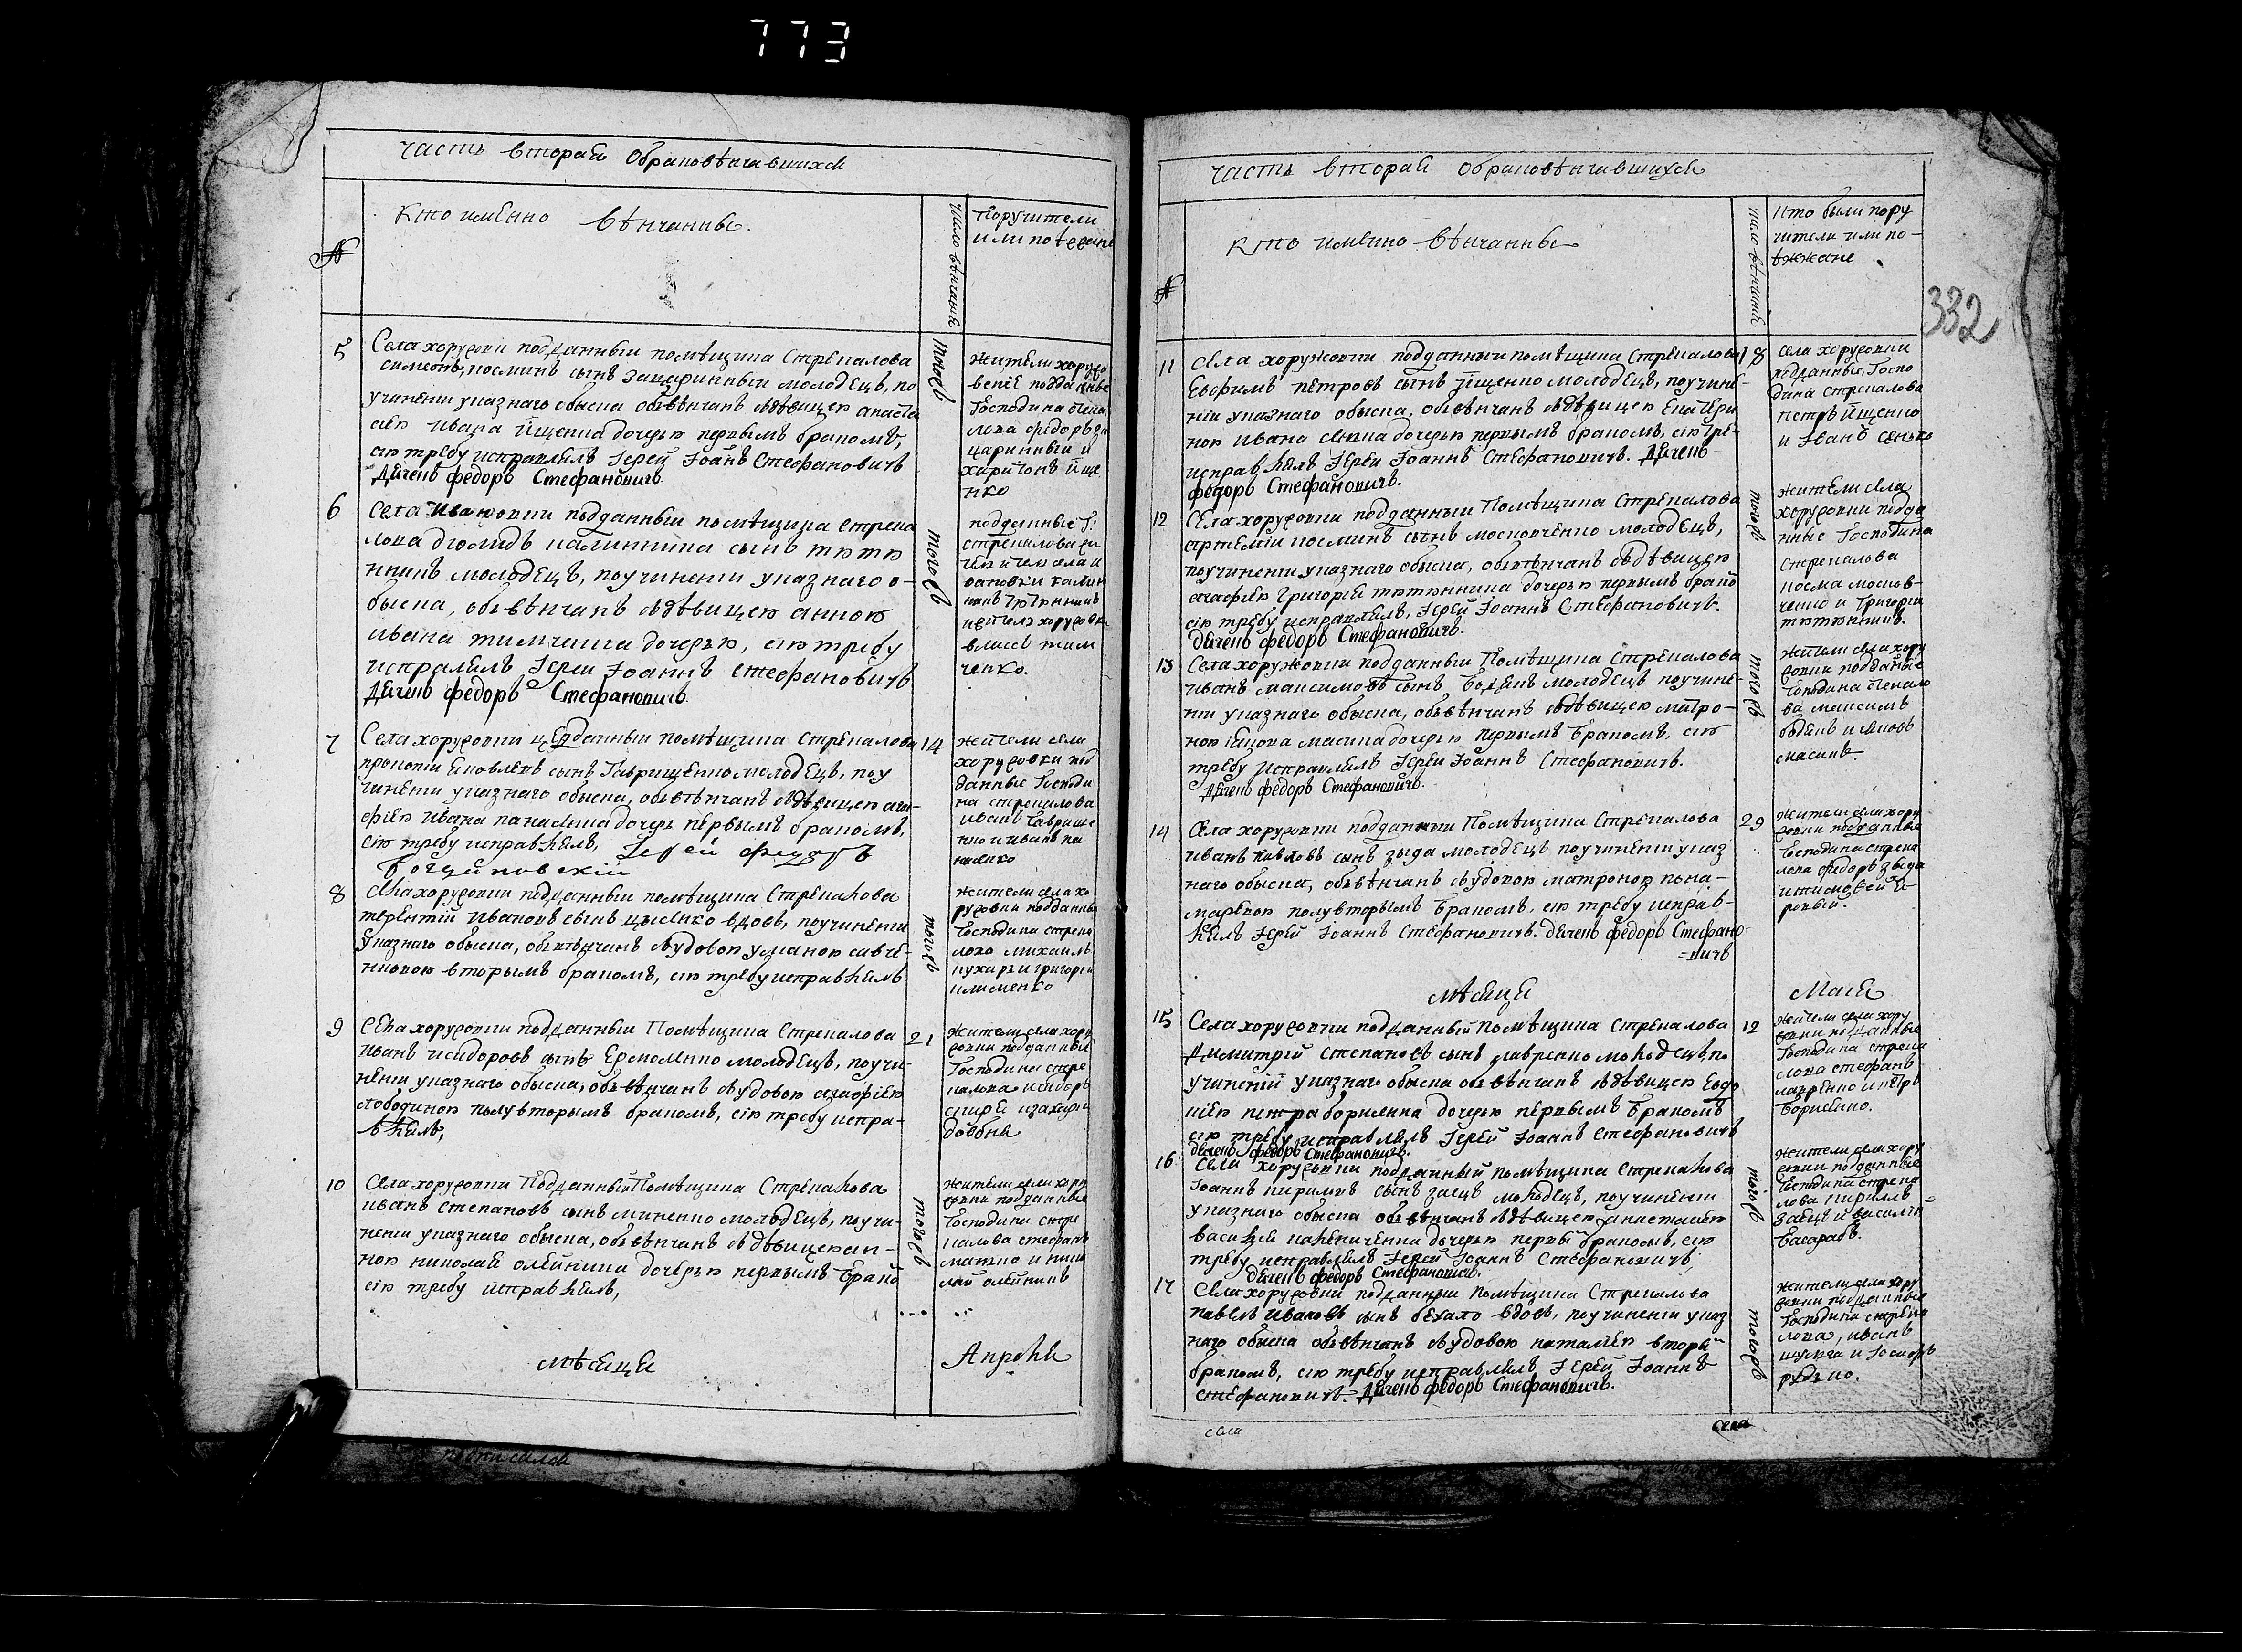 773
часть вторая о бракосвѣнчавшихся
№
кто именно вѣнчанны.
число вѣнчания
поручители
или по
5
Села хоружовки подданный помѣщика Стрекалова
Симеонъ, косминъ сынъ Зацаринный молодецъ, по
учинении указнаго обыска обвѣнчанъ здѣвицею анаста
сиею ивана йщенка дочерью первымъ бракомъ,
сию требу исправлялъ Іерей Іоанъ Стефановичъ
Дячекъ федоръ Стефановичъ.
тогожъ
жители хоружо
подданные
Господина Стека
лова федоръ за
царинный и
харитонъ йще
нко
6
Села Ивановки подданный помѣщика Стрека
лова диомидъ калинника сынъ тютю
нникъ молодецъ, по учинении указнаго о-
быска, обвѣнчанъ здѣвицею анною
ивана тимченка дочерью, сию требу
исправлялъ Іерей Іоаннъ Стефановичъ
Дячекъ федоръ Стефановичъ.
тогожъ
подданные Г:
Стрекалова
тютюнникъ
тим
ченко.
7
Села хоружовки подданный помѣщика Стрекалова
прокопий яковлевъ сынъ Гаврищенко молодецъ, по у
чинении указнаго обыска, обвѣнчанъ здѣвицею ага-
фиею ивана панасенка дочерь первымъ бракомъ,
сию требу исправлялъ, Іерей Федоръ
14
жители села
хоружовки под
данные Господи
на стрекалова
иванъ Гаврище
нко и иванъ па
насенко
8
Села хоружовки подданный помѣщика Стрекалова
терентий Ивановъ сынъ вдовъ, по учинении
указнаго обыска, обвѣнчанъ вдовою савче-
нковою вторымъ бракомъ, сию требу исправлялъ
тогожъ
жители села хо
ружовки подданные
Господина стрека
лова михаилъ
пухаръ и григорий
клименко
9
Села хоружовки подданный Помѣщика Стрекалова
Иванъ исидоровъ сынъ Ермоленко молодецъ, по учи-
нении указнаго обыска, обвѣнчанъ вдовою агафиею
лободиною полувторымъ бракомъ, сию требу испра-
влялъ,
21
жители села хору
жовки подданные
Господина стре
калова исидоръ
довбня
10
Села хоружовки Подданный Помѣщика Стрекалова
иванъ степановъ сынъ молодецъ, по учи-
нении указнаго обыска, обвѣнчанъ здѣвицею ан-
ною николая олейника дочерью первымъ брако
сию требу исправлялъ,
тогожъ
жители села хору
жовки подданные
Господина стре
калова стефанъ
и нико
лай олейникъ
мѣсяца
Апрѣля
часть вторая о бракосвѣнчавшихся
332
№
кто именно вѣнчанны
число вѣнчания
кто были пору
чители или по-
ѣжжане
11
Села хоружовки подданный помѣщика Стрекалова
Евфимъ петровъ сынъ йщенко молодецъ, по учине-
нии указнаго обыска, обвѣнчанъ здѣвицею Екатери
ною ивана сенка дочерью первымъ бракомъ, сию тре-
исправлялъ Іерей Іоаннъ Стефановичъ. Дячекъ
федоръ Стефановичъ.
18
села хоружовки
подданные Госпо
дина стрекалова
петръ йщенко
и Іванъ сенько
12
Села хоружовки подданный Помѣщика Стрекалова
артемий косминъ сынъ московченко молодецъ,
по учинении указнаго обыска, обвѣнчанъ здѣвицею
агафиею григорія тютюнника дочерью первымъ брако
сию требу исправлялъ, Іерей Іоаннъ Стефановичъ.
Дячекъ федоръ Стефановичъ.
тогожъ
жители села
хоружовки подда
нные Господина
стрекалова
косма москов-
ченко и Григорий
тютюнникъ.
13
Села хоружовки подданный Помѣщика Стрекалова
иванъ максимовъ сынъ молодецъ по учине-
нии указнаго обыска, обвѣнчанъ здѣвицею матро-
ною якова масика дочерью первымъ бракомъ, сию
требу исправлялъ Іерей Іоаннъ Стефановичъ.
Дячекъ федоръ Стефановичъ.
тогожъ
жители села хору
жовки подданые
Господина стекало
ва максимъ
и яковъ
масикъ.
14
Села хоружовки подданный Помѣщика Стрекалова
иванъ павловъ сынъ зыда молодецъ по учинении указ
наго обыска, обвѣнчанъ вдовою матроною пона-
маревою полувторымъ бракомъ, сию требу исправ-
лялъ Іерей Іоаннъ Стефановичъ. Дячекъ федоръ Стефано-
=вичъ
29
жители села хору
жовки подданные
Господина стрека
лова федоръ зыда
и тимофей я-
ровый.
мѣсяца
Маия
15
Села хоружовки подданный помѣщика Стрекалова
Димитрий степановъ сынъ лавренко молодецъ по
учинении указнаго обыска обвѣнчанъ здѣвицею Евдо
киею петра борисенка дочерью первымъ бракомъ
сию требу исправлялъ Іерей Іоаннъ Стефановичъ
Дячекъ федоръ Стефановичъ.
12
жители села хору
жовки подданные
Господина стрека
лова стефанъ
лавренко и петръ
борисенко.
16
Села хоружовки подданный помѣщика Стрекалова
Іоаннъ кириловъ сынъ заецъ молодецъ, по учинении
указнаго обыска обвѣнчанъ здѣвицею анастасиею
василия дочерью первы бракомъ, сию
требу исправлялъ Іерей Іоаннъ Стефановичъ,
Дячекъ федоръ Стефановичъ.
тогожъ
жители села хору
жовки подданные
Господина стрека
лова кирилъ
заецъ и василий
басарабъ.
17
Села хоружовки подданный помѣщика Стрекалова
павелъ ивановъ сынъ вдовъ, по учинении указ
наго обыска обвѣнчанъ вдовою наталиею вторы
бракомъ, сию требу исправлялъ Іерей Іоаннъ
Стефановичъ. Дячекъ федоръ Стефановичъ.
тогожъ
жители села хору
жовки подданные
Господина стрека
лова, иванъ
шульга и
рудько.
села
села